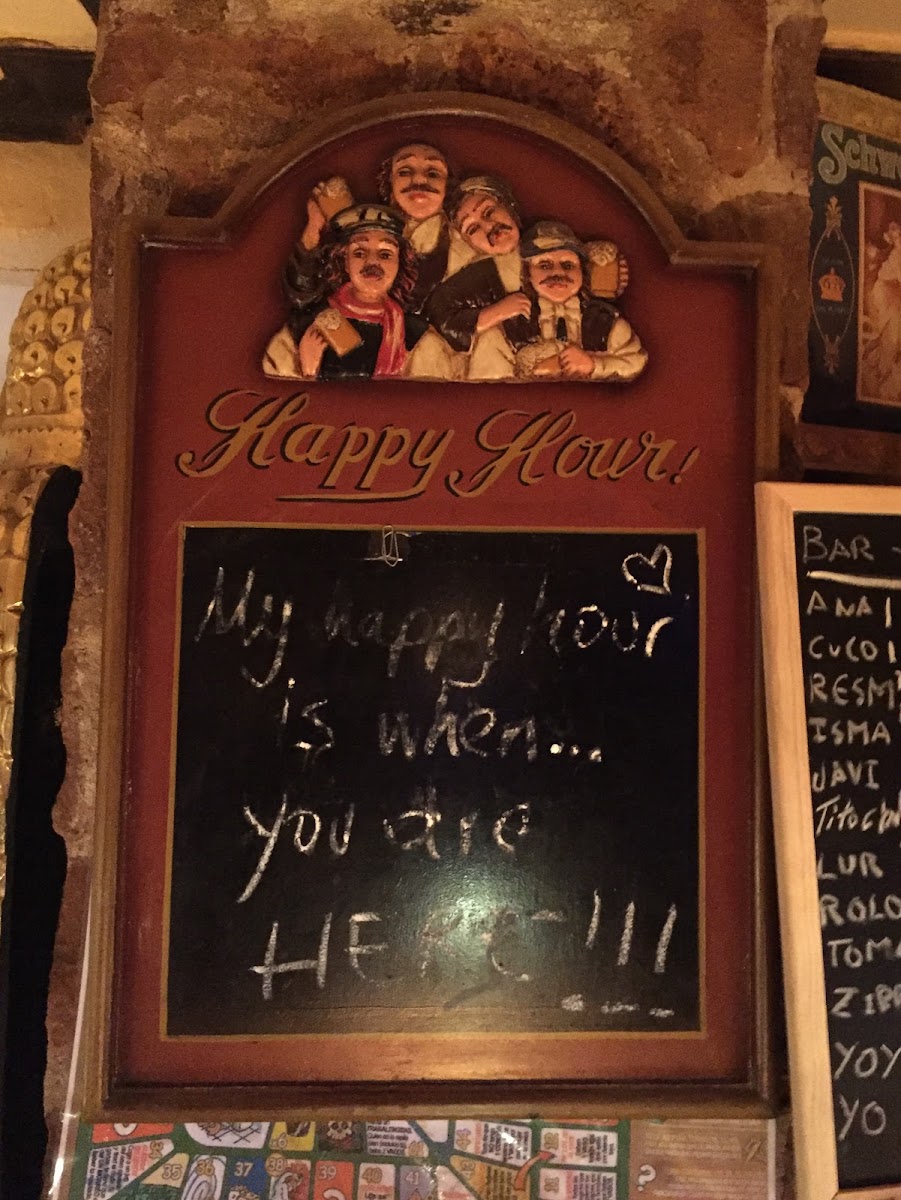 Happy Hour!
My happy hour
is when...
you are
HERE!!!
Schw
BAR -
ANA
CUCO
RESM
ISMA
JAVI
LUR
ROLO
TOM
YOY
YO
35
37
39
41
46